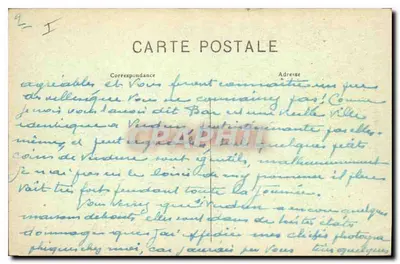 2 I
CARTE POSTALE
Correspondance Adresse
agréables et vous feront connaître un peu
que vous ne connaissez pas! Comme
je vous l'avais dit Bar est une vieille ville
identique à Verdun par elles-
mêmes, et peut quelques petits
coins de verdure sont gentils, malheureusement
je n'ai pas eu le loisir de m'y promener il pleu
vait très fort pendant toute la journée.
Vous verrez que Verdun a encore quelques
maisons debouts, elles sont dans de tristes états
dommage que j'ai mes clichés photogra
phiques chez moi, car j'aurais pu vous quelques